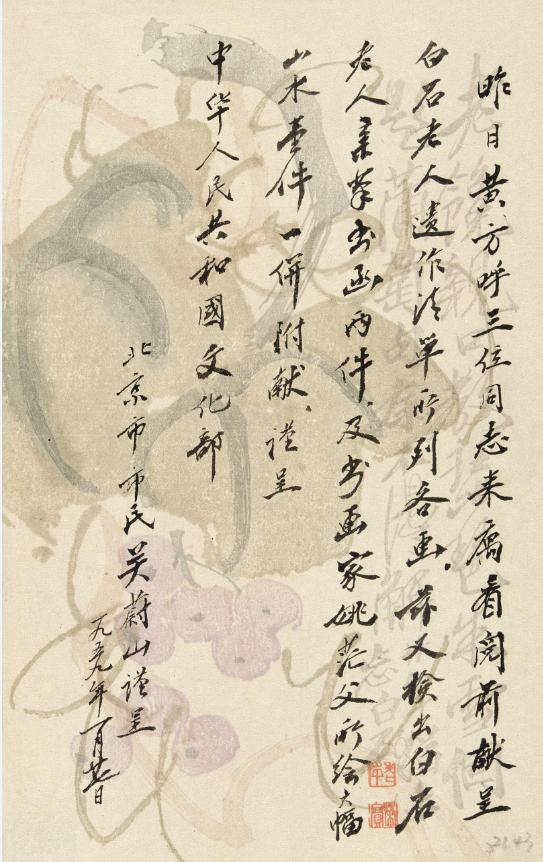 昨日黄方呼三位同志来寓看阅前献呈
白石老人遗作清单所列各画，兹又检出白石
老人亲笔书函两件，及书画家姚茫父所绘大幅
山水壹件一併附献，谨呈
中华人民共和國文化部
北京市市民吴蔚山谨呈
一九五九年一月廿七日
2143